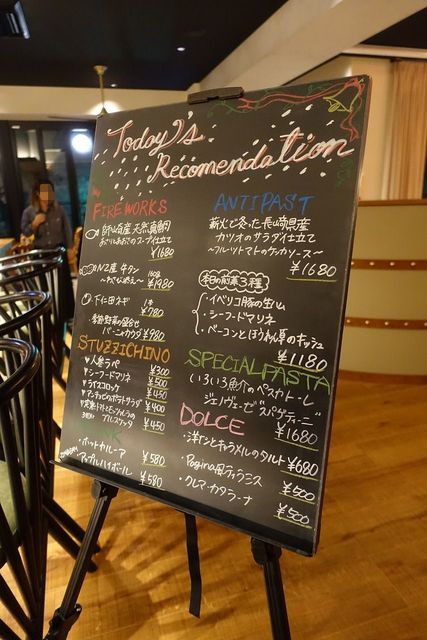 Today's
Recomendation
FIREWORKS
産 天然真鯛
¥1680
NZ産 牛タン 160g
¥1980
下仁田ネギ 1本
¥780
季節野菜の盛合せ
バーニャカウダ ¥980
STUZZICHINO
♥人参ラペ ¥300
♥シーフードマリネ ¥500
♥ライスコロッケ ¥450
♥アンチョビのポテトサラダ ¥400
ブルスケッタ ¥450
・ホットカルーア ¥580
・アップルハイボール ¥580
ANTIPAST
薪火で炙った長崎県産
カツオのサラダ仕立て
~フルーツトマトのケッカソース~
¥1680
本日の前菜3種
・イベリコ豚の生ハム
・シーフードマリネ
・ベーコンとほうれん草のキッシュ
¥1180
SPECIALPASTA
いろいろ魚介のペスカトーレ
ジェノヴェーゼ "スパゲティーニ"
¥1680
DOLCE
・洋ナシとキャラメルのタルト ¥680
・Pagina風ティラミス ¥500
・クレマ・カタラーナ ¥500